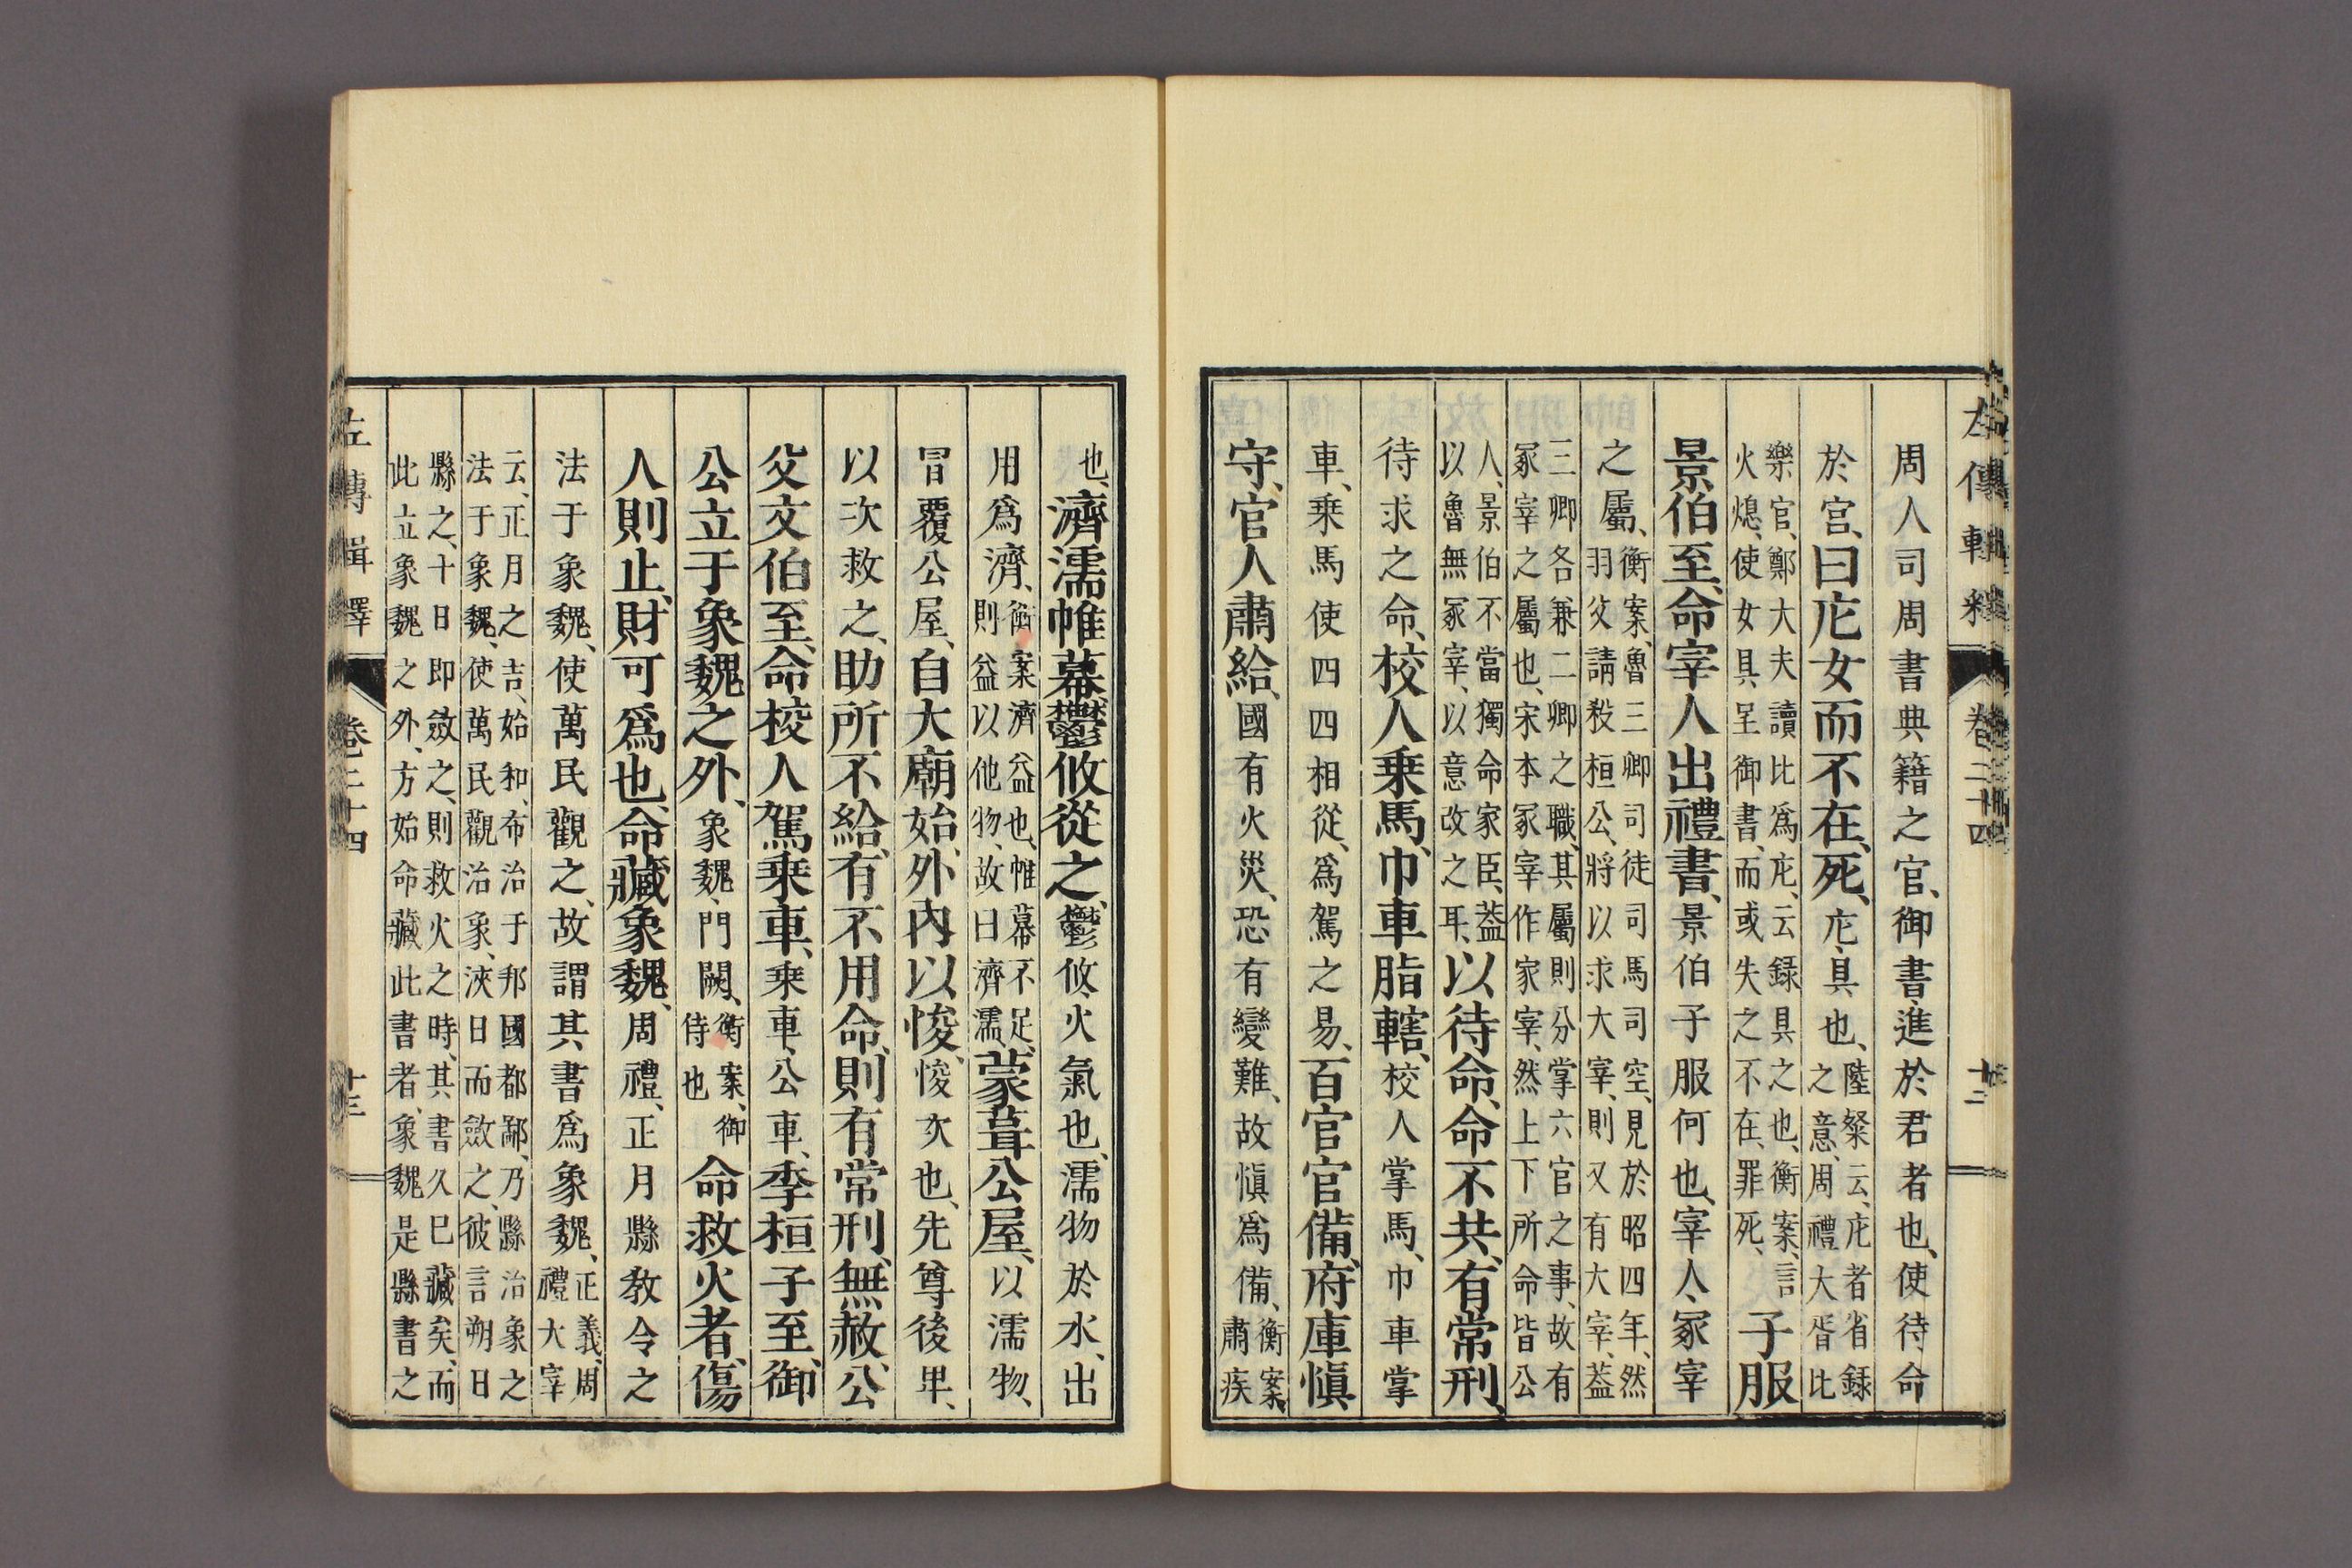 左傳輯釋 卷二十四 十二
周人司周書典籍之官、御書、進於君者也、使待命
於宮、曰庀女而不在、死、庀、具也、陸粲云、庀者省録之意、周禮大胥比
樂官、鄭大夫讀比爲庀、云録具之也、衡案、言火熄、使女具呈御書、而或失之不在、罪死、子服
景伯至、命宰人出禮書、景伯子服何也、宰人、冢宰
之屬、衡案、魯三卿司徒司馬司空、見於昭四年、然羽父請殺桓公、將以求大宰、則又有大宰、蓋
三卿各兼二卿之職、其屬則分掌六官之事、故有冢宰之屬也、宋本冢宰作家宰、然上下所命皆公
人、景伯不當獨命家臣、蓋以魯無冢宰、以意改之耳、以待命、命不共、有常刑、
待求之命、校人乗馬、巾車脂轄、校人掌馬、巾車掌
車、乗馬使四四相從、爲駕之易、百官官備、府庫愼
守、官人肅給、國有火災、恐有變難、故愼爲備、衡案、肅疾
也、濟濡帷幕、鬱攸從之、鬱攸、火氣也、濡物於水、出
用爲濟、衡案濟益也、帷幕不足、則益以他物、故曰濟濡、蒙葺公屋、以濡物、
冒覆公屋、自大廟始、外內以悛、悛次也、先尊後卑、
以次救之、助所不給、有不用命、則有常刑、無赦、公
父文伯至、命校人駕乗車、乗車、公車、季桓子至、御
公立于象魏之外、象魏、門闕、衡案、御侍也 命救火者、傷
人則止、財可爲也、命藏象魏、周禮、正月縣敎令之
法于象魏、使萬民觀之、故謂其書爲象魏、正義、周禮大宰
云、正月之吉、始和、布治于邦國都鄙、乃縣治象之法于象魏、使萬民觀治象、浹日而斂之、彼言朔日
縣之、十日即斂之、則救火之時、其書久已藏矣、而此立象魏之外、方始命藏此書者、象魏是縣書之
左傳輯釋 卷二十四 十三